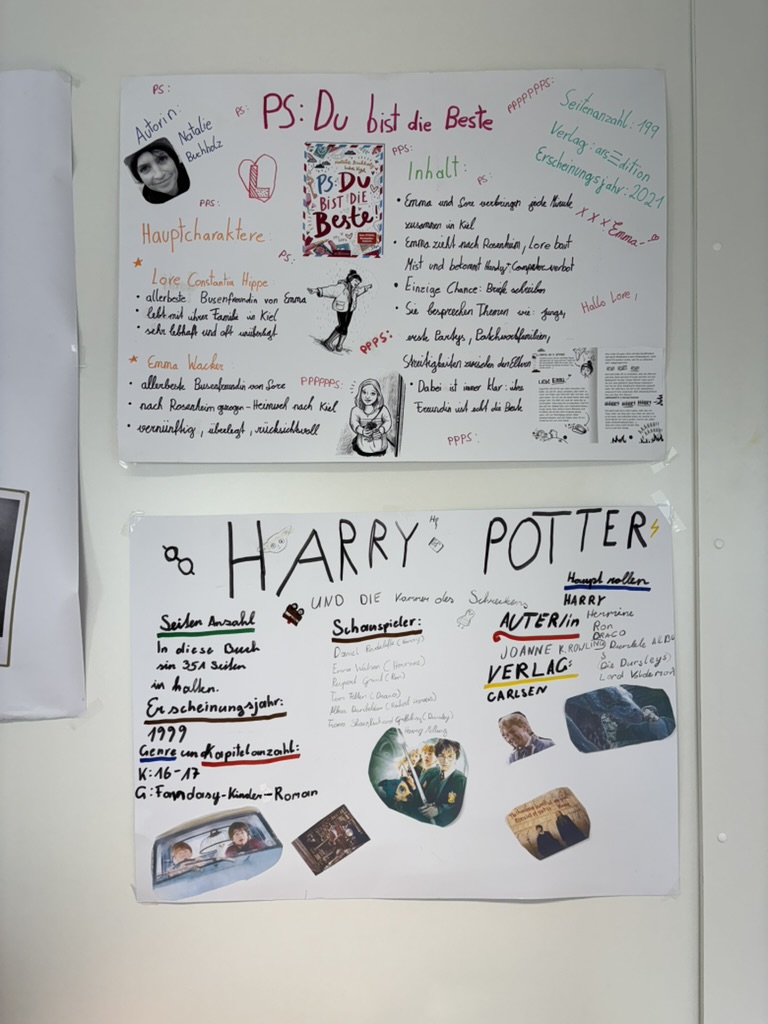 PS:
PS: Du bist die Beste
PS:
PPPPPPPS:
Autorin:
Natalie
Buchholz
Seitenanzahl: 199
Verlag: arsEdition
Erscheinungsjahr: 2021
x x x Emma
L
PS: DU
BIST DIE
Beste!
PPS:
Inhalt:
PS:
PPS:
Hauptcharaktere:
PS:
Lore Constantia Hippe
• allerbeste Busenfreundin von Emma
• lebt mit ihrer Familie in Kiel
• sehr lebhaft und oft unüberlegt
PPPS:
Emma Wacker
PPPPPPS:
• allerbeste Busenfreundin von Lore
• nach Rosenheim gezogen - Heimweh nach Kiel
• vernünftig, überlegt, rücksichtvoll
• Emma und Lore verbringen jede Minute
zusammen in Kiel
• Emma zieht nach Rosenheim, Lore baut
Mist und bekommt Handy-Computerverbot
• Einzige Chance: Briefe schreiben
• Sie besprechen Themen wie: Jungs,
erste Partys, Patchworkfamilien,
Streitigkeiten zwischen den Eltern
• Dabei ist immer klar: ihre
Freundin ist echt die Beste
Hallo Lore,
PPPS:
HARRY POTTER
UND DIE Kammer des Schreckens
Seiten Anzahl
In diese Buch
sin 351 Seiten
in halten.
Erscheinungsjahr:
1999
Genre und Kapitelanzahl:
K: 16-17
G: Fandasy-Kinder-Roman
Schauspieler:
Emma Watson
AUTER/in
JOANNE K. ROWLING
VERLAG:
CARLSEN
Haupt rollen
HARRY
Hermine
Ron
DRACO
Die Dursleys
Lord Voldemort